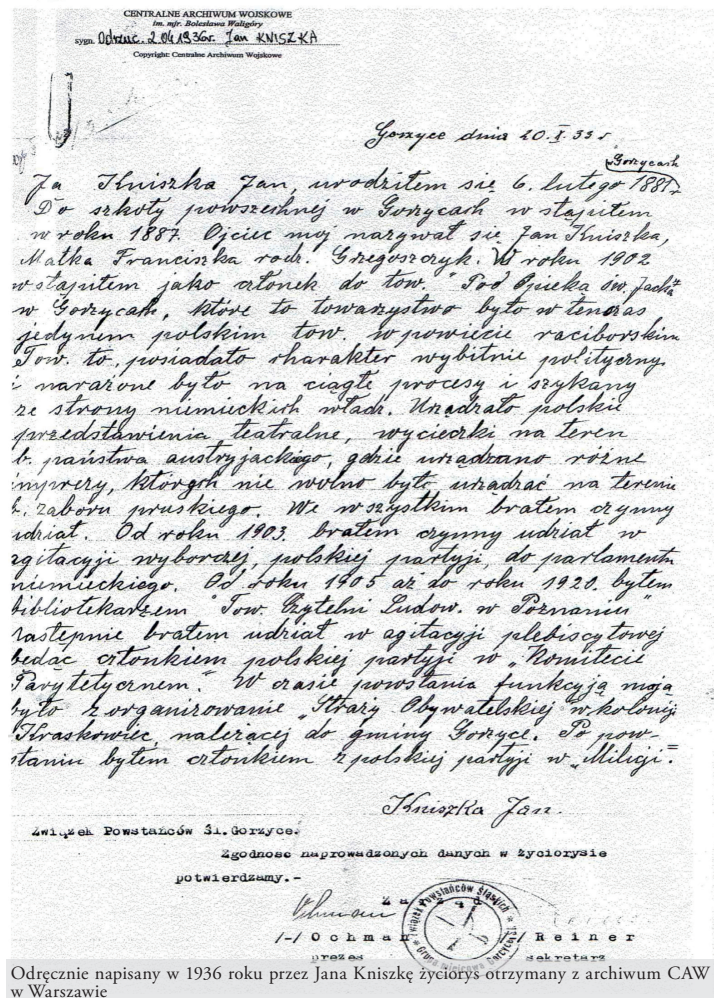 CENTRALNE ARCHIWUM WOJSKOWE
im. mjr. Bolesława Waligóry
sygn. Odrzuc. 2.04.1936r. Jan KNISZKA
Copyright: Centralne Archiwum Wojskowe
Gorzyce dnia 20.X.33 r
w Gorzycach
Ja Kniszka Jan, urodziłem się 6. lutego 1881 r.
Do szkoły powszechnej w Gorzycach wstąpiłem
w roku 1887. Ojciec mój nazywał się Jan Kniszka,
Matka Franciszka rodz. Grzegoszczyk. W roku 1902
wstąpiłem jako członek do tow. "Pod Opieką św. Jacka"
w Gorzycach, które to towarzystwo było w tenczas
jedynem polskim tow. w powiecie raciborskim
Tow. to, posiadało charakter wybitnie polityczny
i narażone było na ciągłe procesy i szykany
ze strony niemieckich władz. Urządzało polskie
przedstawienia teatralne, wycieczki na teren
b. państwa austryjackiego, gdzie urządzano różne
imprezy, których nie wolno było urządzać na terenie
b. zaboru pruskiego. We wszystkim brałem czynny
udział. Od roku 1903. brałem czynny udział w
agitacyji wyborczej, polskiej partyji, do parlamentu
niemieckiego. Od roku 1905 aż do roku 1920. byłem
bibliotekarzem "Tow. Czytelni Ludow. w Poznaniu"
następnie brałem udział w agitacyji plebiscytowej
będąc członkiem polskiej partyji w "Komitecie
Parytetycznem." W czasie powstania funkcyją moją
było zorganizowanie "Straży Obywatelskiej w koloniji
Kraskowiec, należącej do gminy Gorzyce. Po pow-
staniu byłem członkiem z polskiej partyji w "Milicji".
Kniszka Jan.
Związek Powstańców Śl. Gorzyce.
Zgodność naprowadzonych danych w życiorysie
potwierdzamy.-
Zarząd
/-/ Ochman /-/ Reiner
prezes sekretarz
Związek Powstańców Śląskich
Grupa miejscowa Gorzyce
Odręcznie napisany w 1936 roku przez Jana Kniszkę życiorys otrzymany z archiwum CAW
w Warszawie